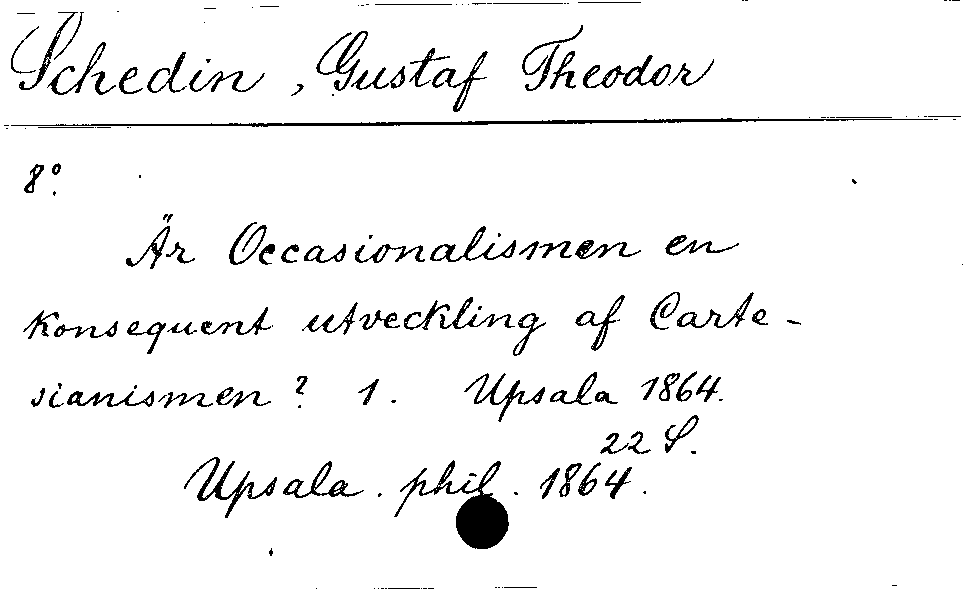 Schedin, Gustaf Theodor
8°.
Är Occasionalismen en
konsequent utveckling af Carte-
sianismen? 1. Upsala 1864.
22 S.
Upsala. phil. 1864.